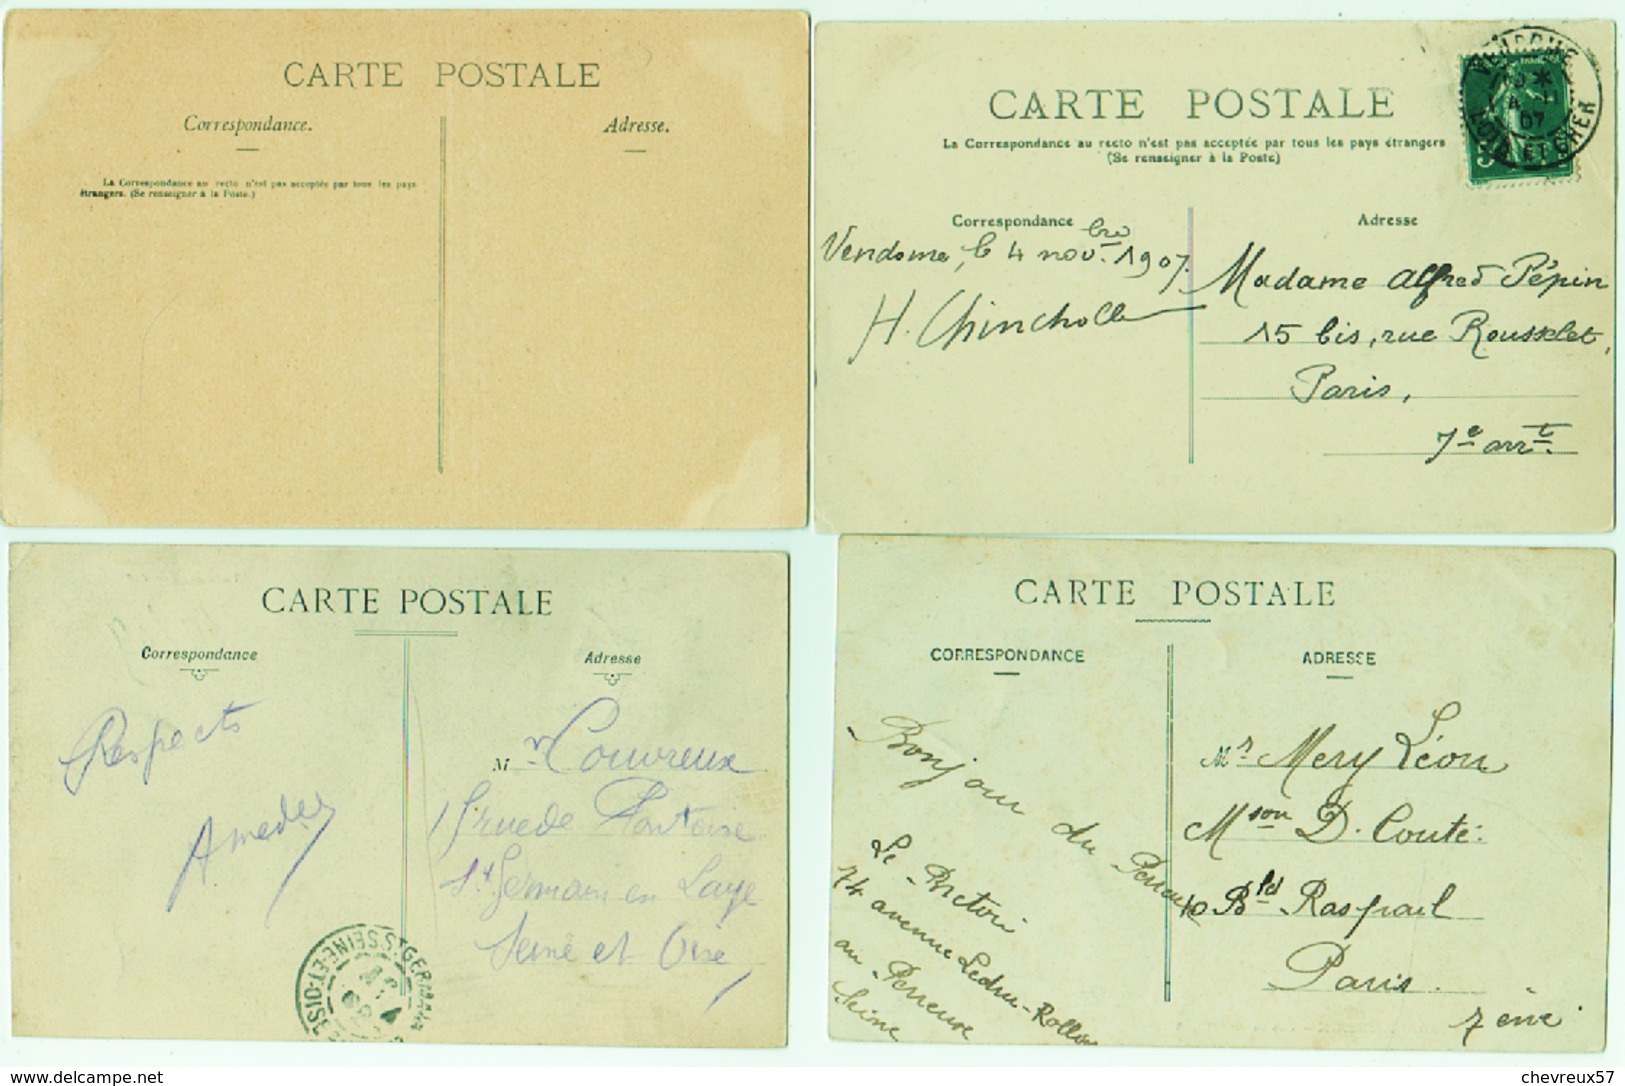 CARTE POSTALE
Correspondance.
Adresse.
La Correspondance au recto n'est pas acceptée par tous les pays
étrangers. (Se renseigner à la Poste.)
CARTE POSTALE
La Correspondance au recto n'est pas acceptée par tous les pays étrangers
(Se renseigner à la Poste)
Correspondance
Adresse
Vendome, le 4 novbre 1907.
H. Chincholle
Madame Alfred Pépin
15 bis, rue Rousselet,
Paris,
7e arrt.
VENDOME
4 - 11
07
LOIR ET CHER
CARTE POSTALE
Correspondance
Adresse
Respects
Amedee
Mr Couvreux
rue de Pontoise
St Germain en Laye
Seine et Oise
ST GERMAIN
SEINE-ET-OISE
CARTE POSTALE
CORRESPONDANCE
ADRESSE
Bonjour du Perreux
Le
74 avenue Ledru-Rollin
au Perreux
Seine
Mr Mery Léon
Mson D. Couté.
10 Bld Raspail
Paris.
7 ème
https://www.delcampe.net
chevreux57